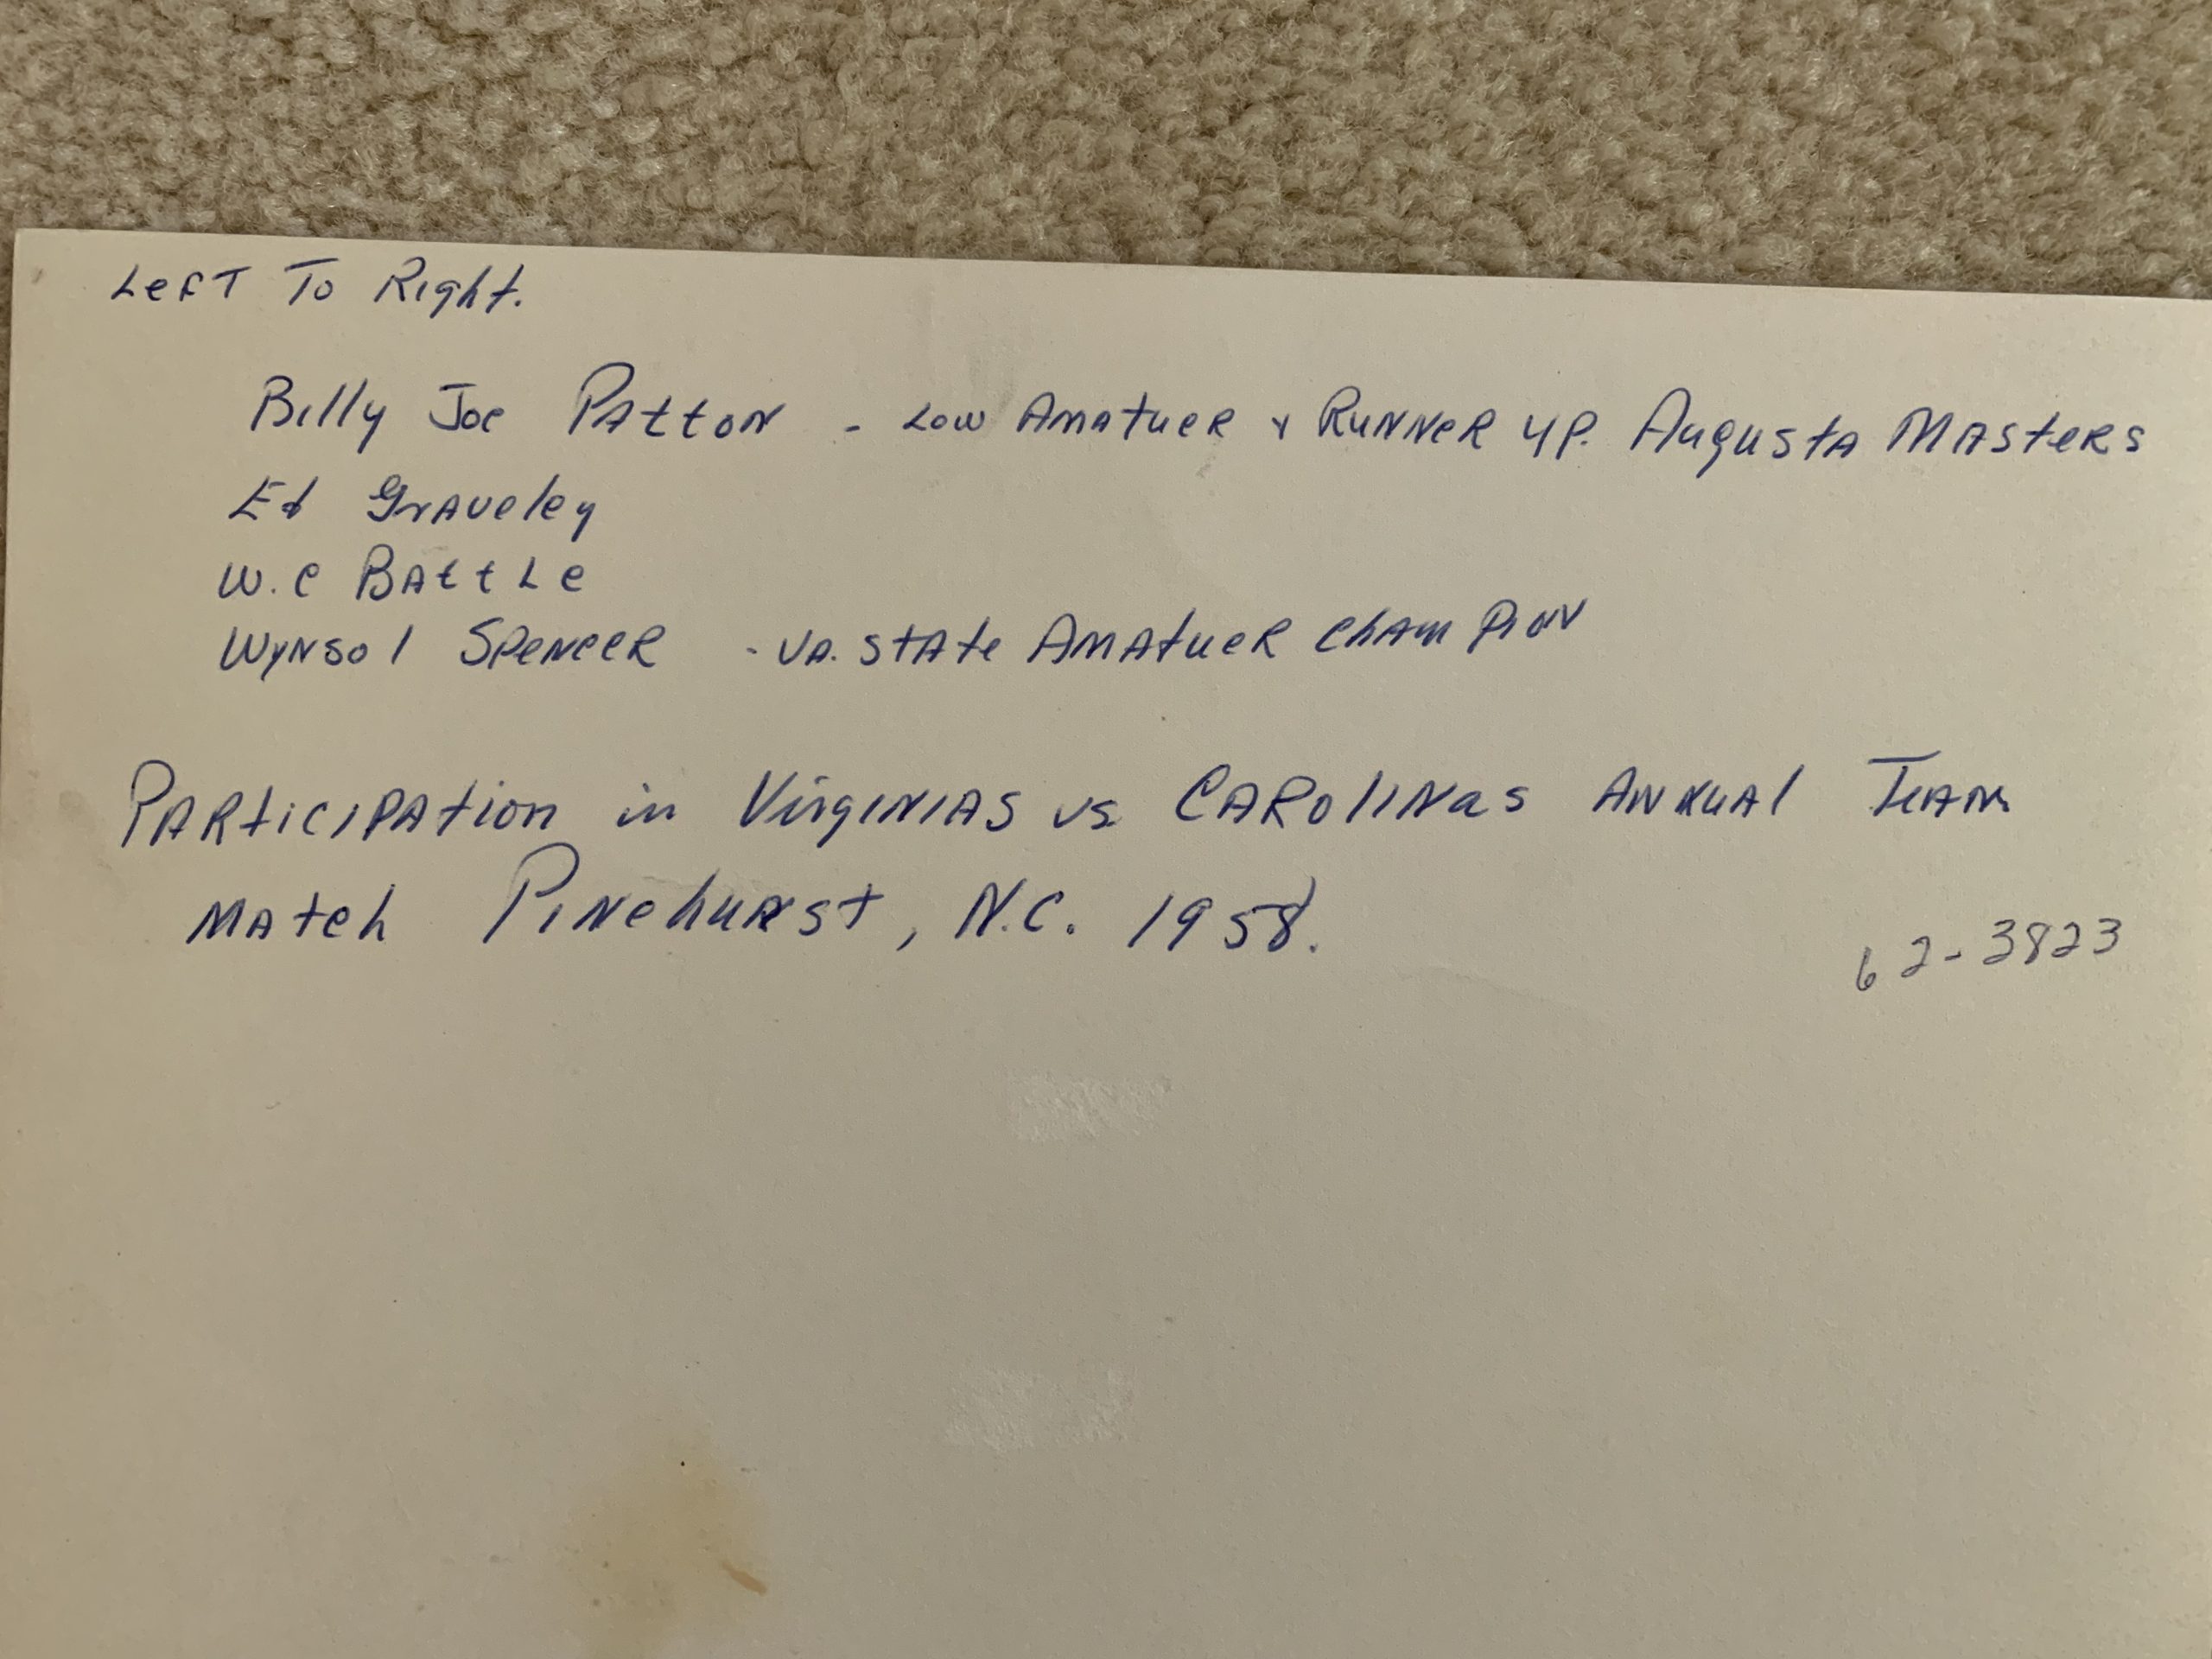 Left To Right.
Billy Joe Patton - Low Amatuer & Runner up. Augusta Masters
Ed Graveley
W.C Battle
Wynsol Spencer - Va. State Amatuer Champion
Participation in Virginias vs. Carolinas Annual Team
Match Pinehurst, N.C. 1958.
62-3823